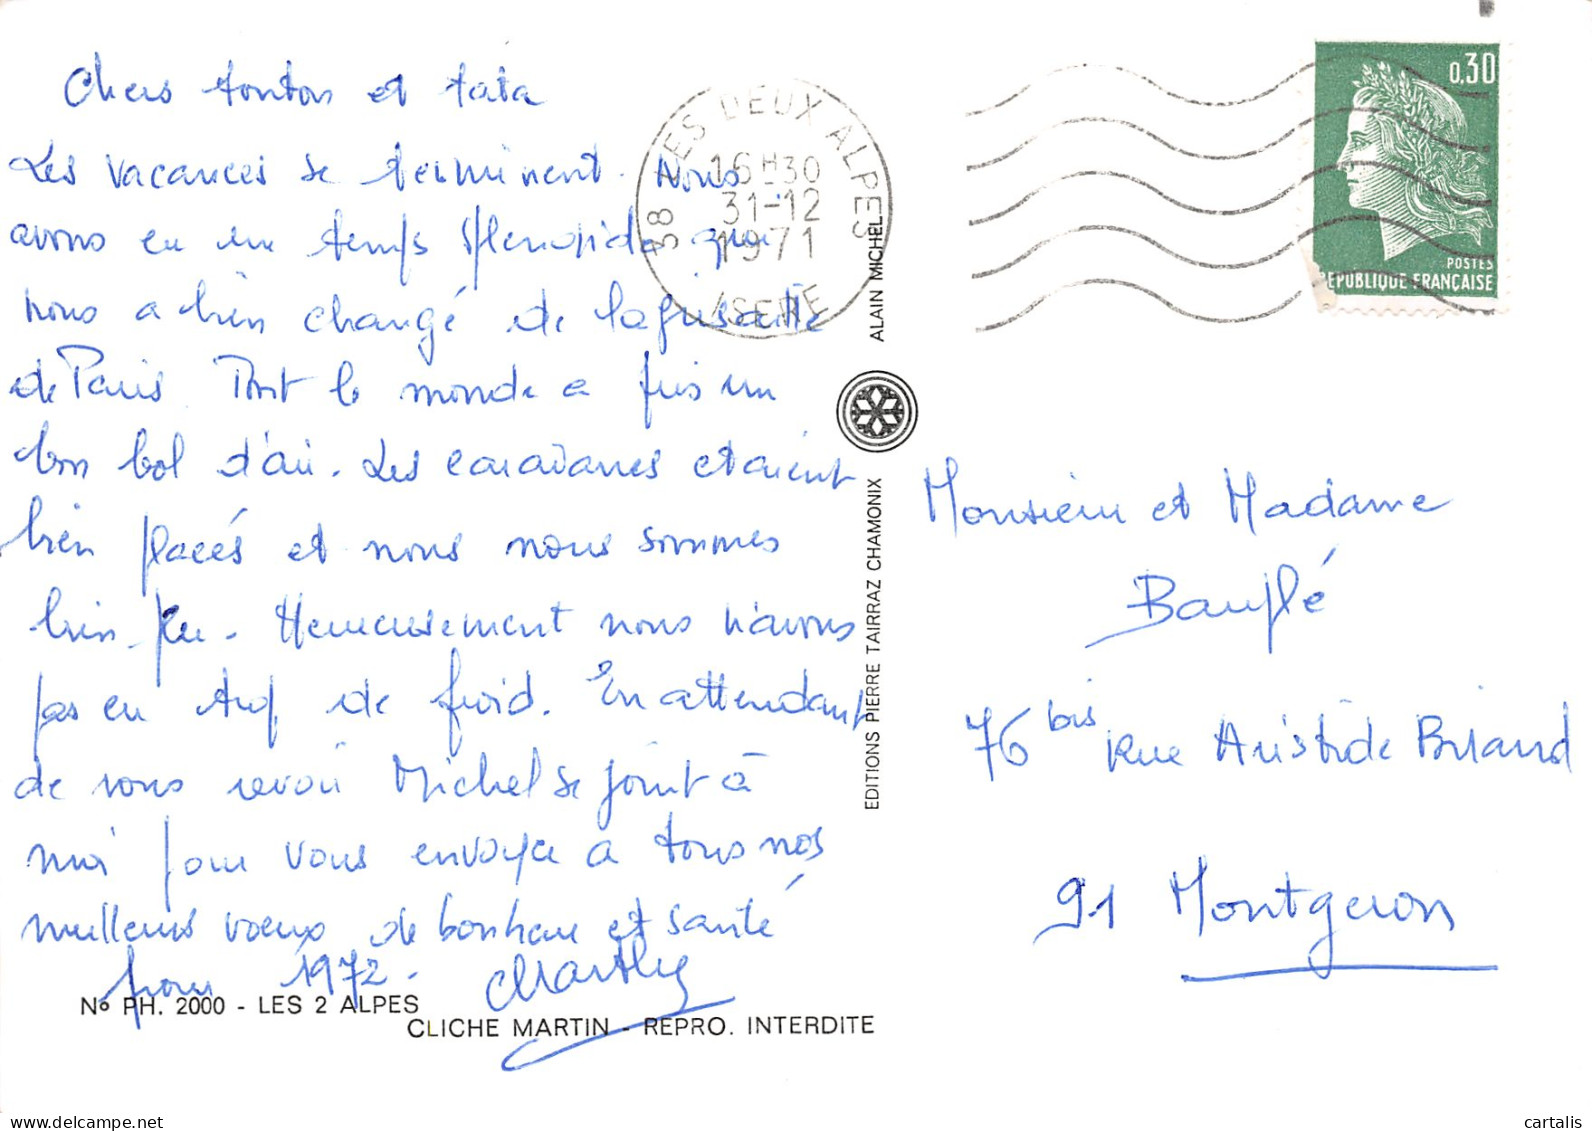 Chers tonton et tata
Les vacances se terminent. Nous
avons eu un temps splendide qui
nous a bien changé de la grisaille
de Paris. Tout le monde a pris un
bon bol d'air. Les caravanes etaient
bien placés et nous nous sommes
bien plu. Heureusement nous n'avons
pas eu trop de froid. En attendant
de vous revoir Michel se joint à
moi pour vous envoyer a tous nos
meilleurs voeux de bonheur et santé
pour 1972.
Nº PH. 2000 - LES 2 ALPES
CLICHE MARTIN - REPRO. INTERDITE
38 LES DEUX ALPES
16H30
31-12
1971
ISERE
ALAIN MICHEL
EDITIONS PIERRE TAIRRAZ CHAMONIX
0,30
POSTES
REPUBLIQUE FRANÇAISE
Monsieur et Madame
76 bis rue Aristide Briand
91 Montgeron
cartalis